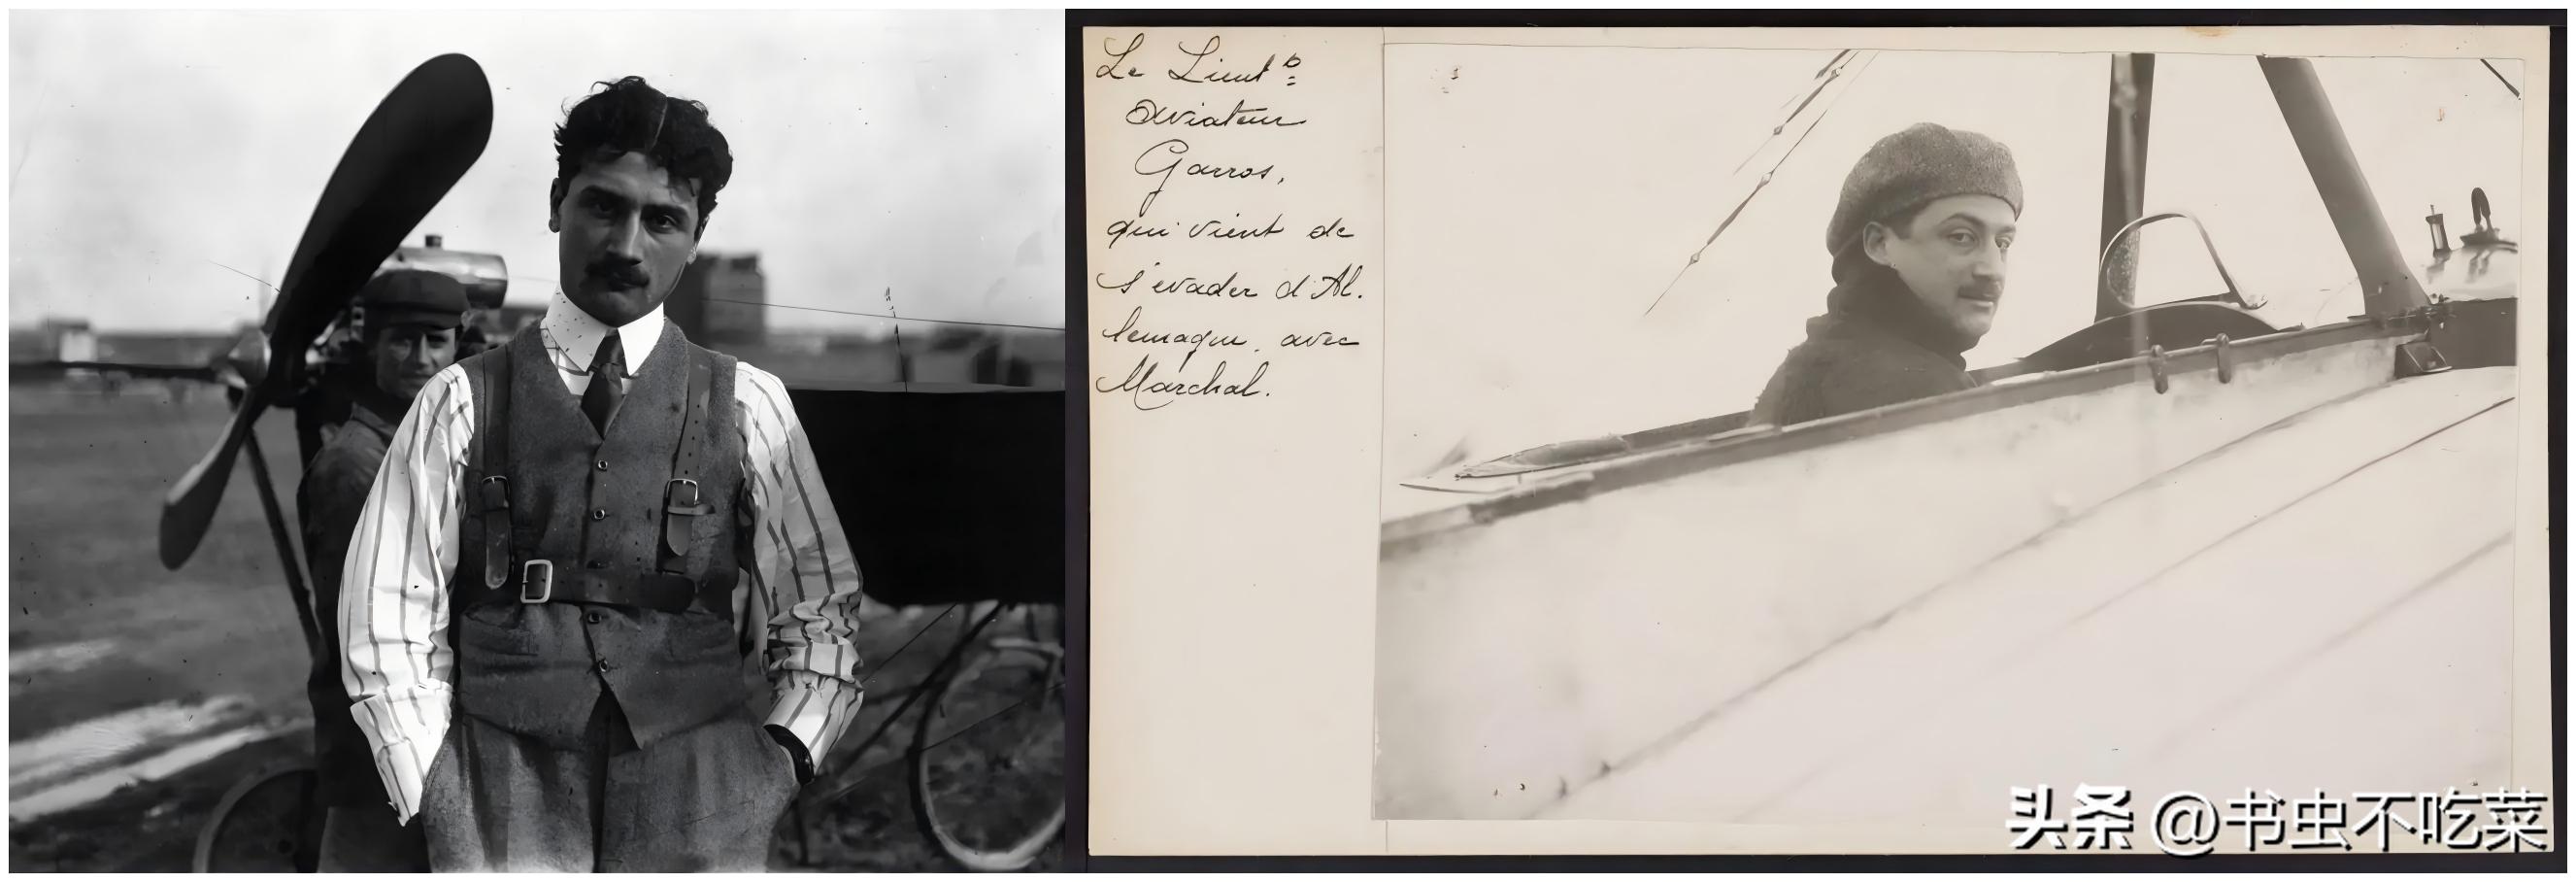 Le Lieut^t
aviateur
Garros,
qui vient de
s'évader d'Al.
lemagne, avec
Marchal.
头条 @书虫不吃菜